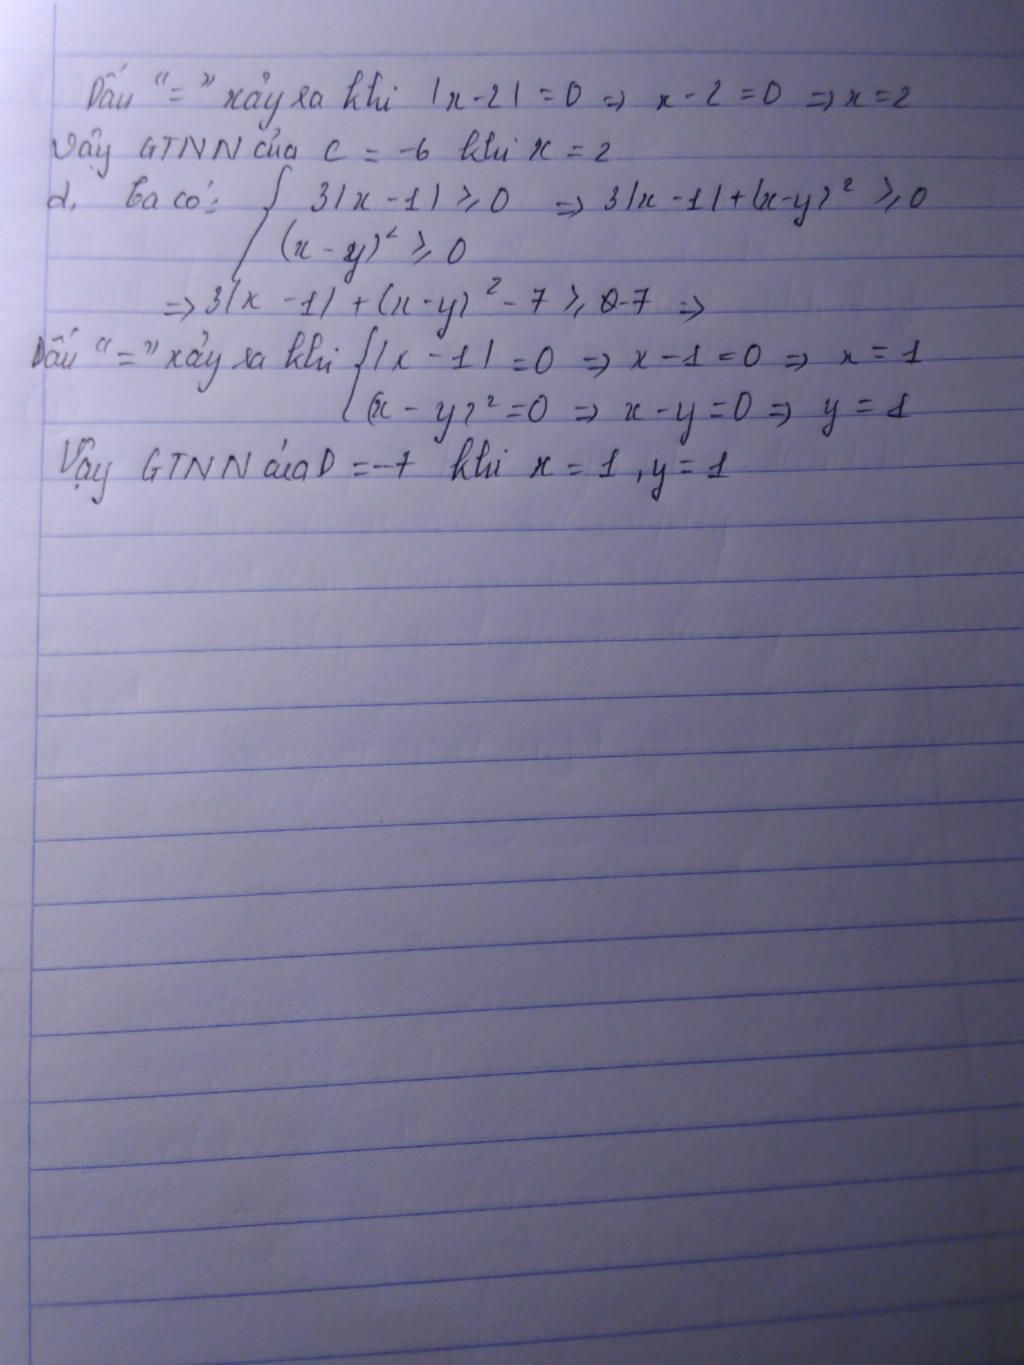 Dấu "=" xảy ra khi |x-2| = 0 => x-2 = 0 => x = 2
Vậy GTNN của C = -6 khi x = 2
d. Ta có: { 3|x-1| ⩾ 0 => 3|x-1| + (x-y)² ⩾ 0
(x-y)² ⩾ 0
=> 3|x-1| + (x-y)² - 7 ⩾ 0-7 =>
Dấu "=" xảy ra khi { |x-1| = 0 => x-1 = 0 => x = 1
(x-y)² = 0 => x-y = 0 => y = 1
Vậy GTNN của D = -7 khi x = 1, y = 1